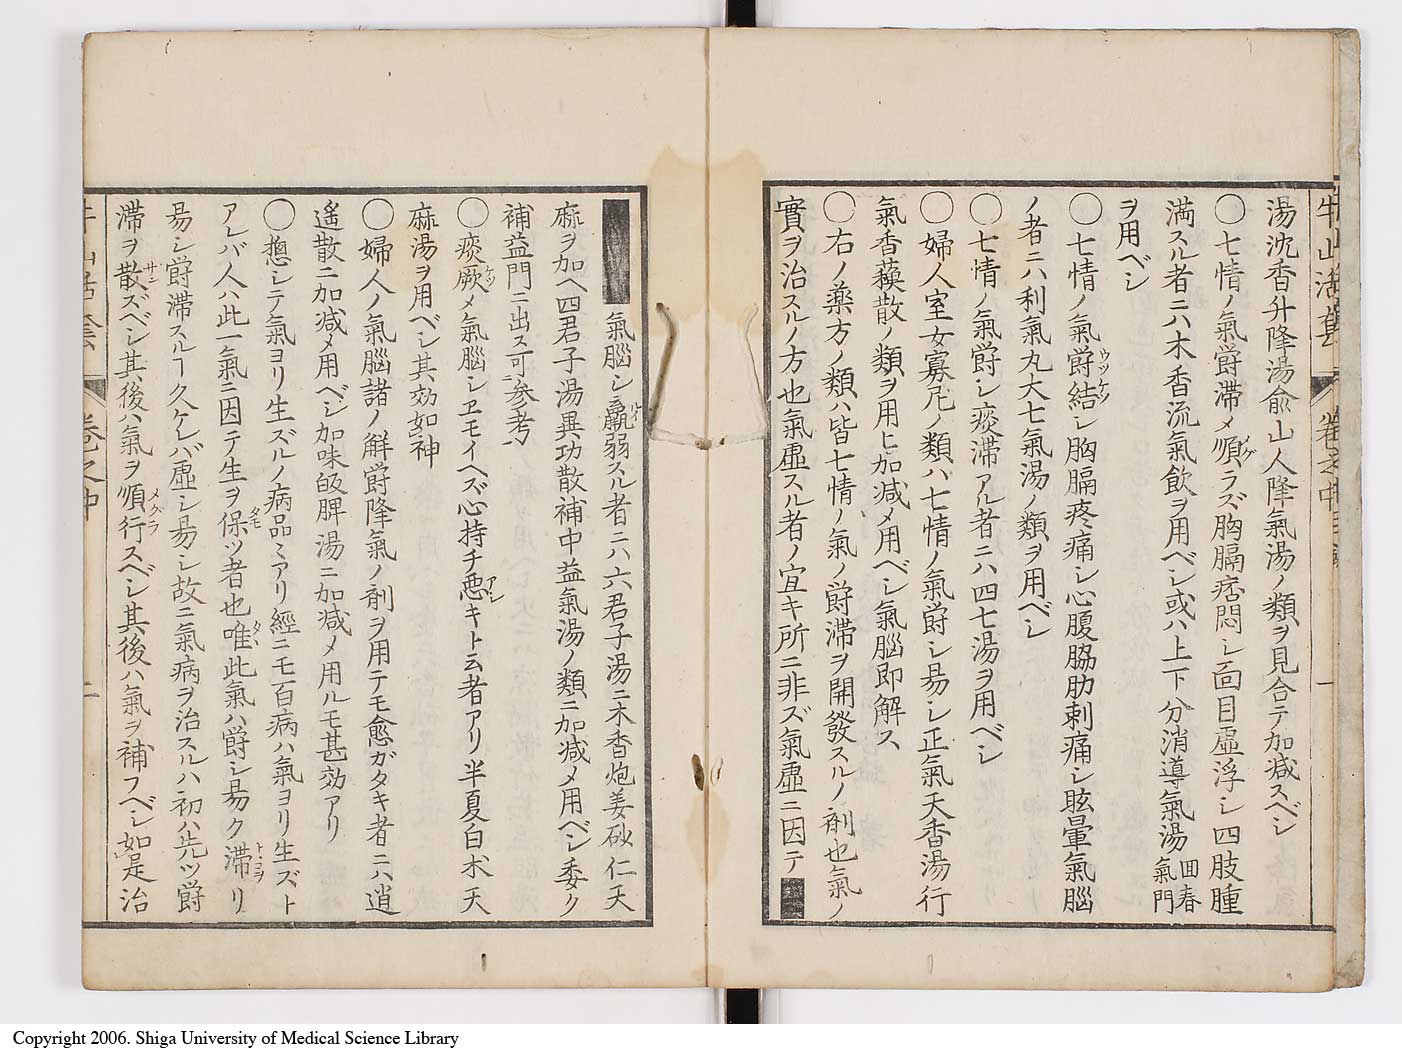 湯沈香升降湯俞山人降氣湯ノ類ヲ見合テ加減スベシ
〇七情ノ氣欝滯乄順ラズ胸膈痞悶シ面目虛浮シ四肢腫
満スル者ニハ木香流氣飲ヲ用ベシ或ハ上下分消導氣湯 囬春氣門
ヲ用ベシ
〇七情ノ氣欝結シ胸膈疼痛シ心腹脇肋刺痛シ眩暈氣腦
ノ者ニハ利氣丸大七氣湯ノ類ヲ用ベシ
〇七情ノ氣欝シ痰滯アル者ニハ四七湯ヲ用ベシ
〇婦人室女寡尼ノ類ハ七情ノ氣欝シ易シ正氣天香湯行
氣香蘓散ノ類ヲ用ヒ加減乄用ベシ氣腦即解ス
〇右ノ藥方ノ類ハ皆七情ノ氣ノ欝滯ヲ開發スルノ剤也氣ノ
實ヲ治スルノ方也氣虛スル者ノ宜キ所ニ非ズ氣虛ニ因テ
氣腦シ羸弱スル者ニハ六君子湯ニ木香炮姜砂仁天
麻ヲ加ヘ四君子湯異功散補中益氣湯ノ類ニ加减乄用ベシ委ク
補益門ニ出ス可参考
〇痰厥乄氣腦シヱモイヘズ心持チ悪キト云者アリ半夏白朮天
麻湯ヲ用ベシ其効如神
〇婦人ノ氣腦諸ノ解欝降氣ノ剤ヲ用テモ愈ガタキ者ニハ逍
遙散ニ加减乄用ベシ加味皈脾湯ニ加减乄用ルモ甚効アリ
〇摠シテノ氣ヨリ生ズルノ病品ミアリ經ニモ百病ハ氣ヨリ生ズト
アレバ人ハ此一氣ニ因テ生ヲ保ツ者也唯此氣ハ欝シ易ク滯リ
易シ欝滯スルヿ久ケレバ虛シ易シ故ニ氣病ヲ治スルハ初ハ先ツ欝
滯ヲ散ズベシ其後ハ氣ヲ順行スベシ其後ハ氣ヲ補フベシ如是治
牛山活套 卷之中 一
牛山活套 卷之中 二
Copyright 2006. Shiga University of Medical Science Library